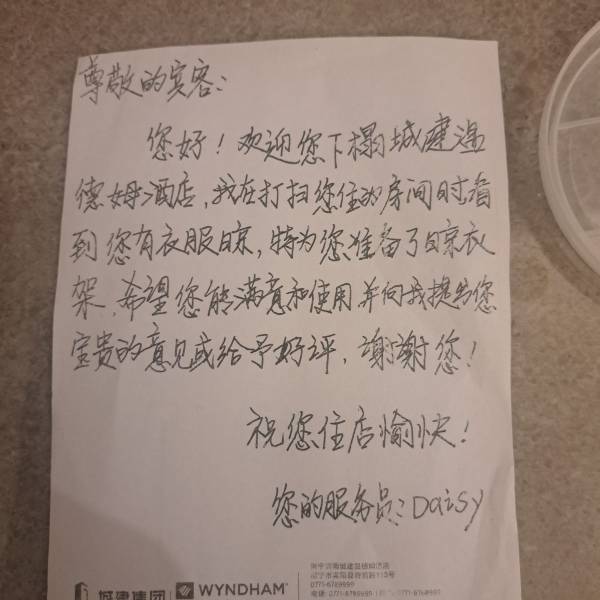 尊敬的宾客：
您好！欢迎您下榻城建温
德姆酒店，我在打扫您住的房间时看
到您有衣服晾，特为您准备了晾衣
架，希望您能满意和使用并向我提出您
宝贵的意见或给予好评，谢谢您！
祝您住店愉快！
您的服务员：Daisy
城建集团 WYNDHAM
0771-6789999